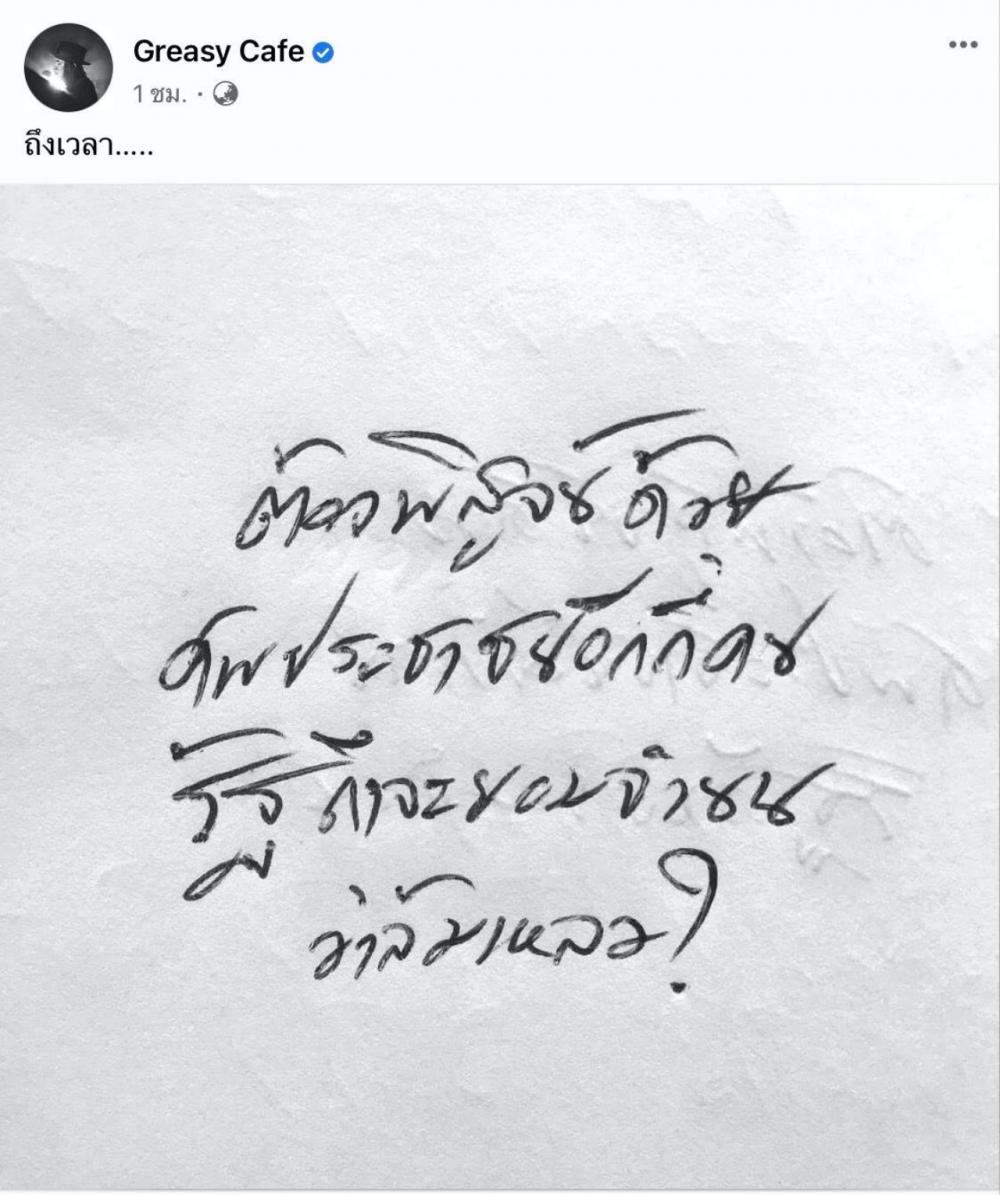 Greasy Cafe
1 ชม. ·
ถึงเวลา.....
ต้องพิสูจน์ด้วย
ศพประชาชนอีกกี่คน
รัฐถึงจะยอมจำนน
ว่าล้มเหลว?